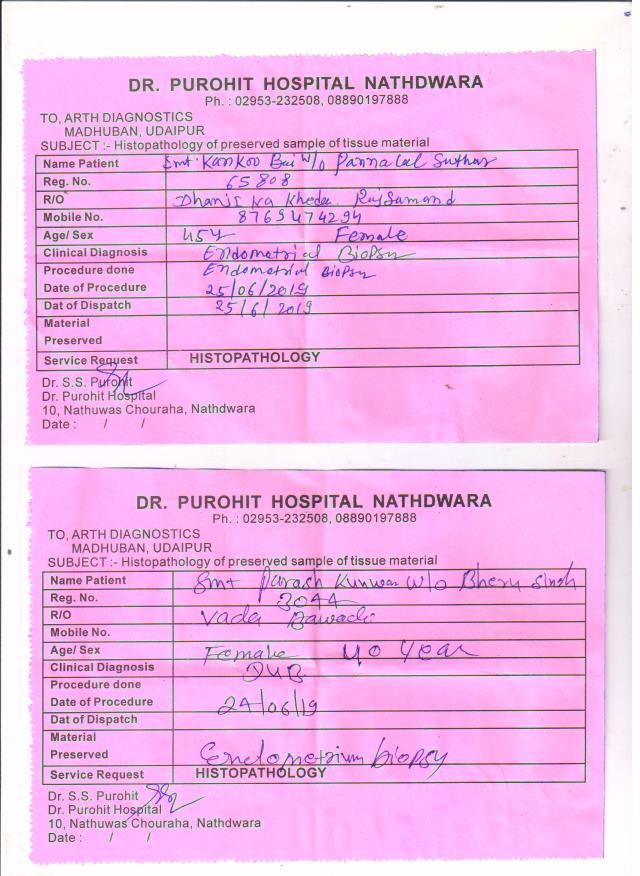 DR. PUROHIT HOSPITAL NATHDWARA
Ph. : 02953-232508, 08890197888
TO, ARTH DIAGNOSTICS
MADHUBAN, UDAIPUR
SUBJECT :- Histopathology of preserved sample of tissue material
Name Patient Smt. Kankoo Bai W/o Pannalal Suthar
Reg. No. 65808
R/O Dhanis ka Kheda. Rajsamand
Mobile No. 8769474294
Age/ Sex 45Y Female
Clinical Diagnosis Endometrial Biopsy
Procedure done Endometrial Biopsy
Date of Procedure 25/06/2019
Dat of Dispatch 25/6/2019
Material
Preserved
Service Request HISTOPATHOLOGY
Dr. S.S. Purohit
Dr. Purohit Hospital
10, Nathuwas Chouraha, Nathdwara
Date : / /
DR. PUROHIT HOSPITAL NATHDWARA
Ph. : 02953-232508, 08890197888
TO, ARTH DIAGNOSTICS
MADHUBAN, UDAIPUR
SUBJECT :- Histopathology of preserved sample of tissue material
Name Patient Smt Parash Kunwar W/o Bheru Singh
Reg. No. 3044
R/O Vada
Mobile No.
Age/ Sex Female 40 Year
Clinical Diagnosis DUB
Procedure done
Date of Procedure 24/06/19
Dat of Dispatch
Material
Preserved Endometrium biopsy
Service Request HISTOPATHOLOGY
Dr. S.S. Purohit
Dr. Purohit Hospital
10, Nathuwas Chouraha, Nathdwara
Date : / /